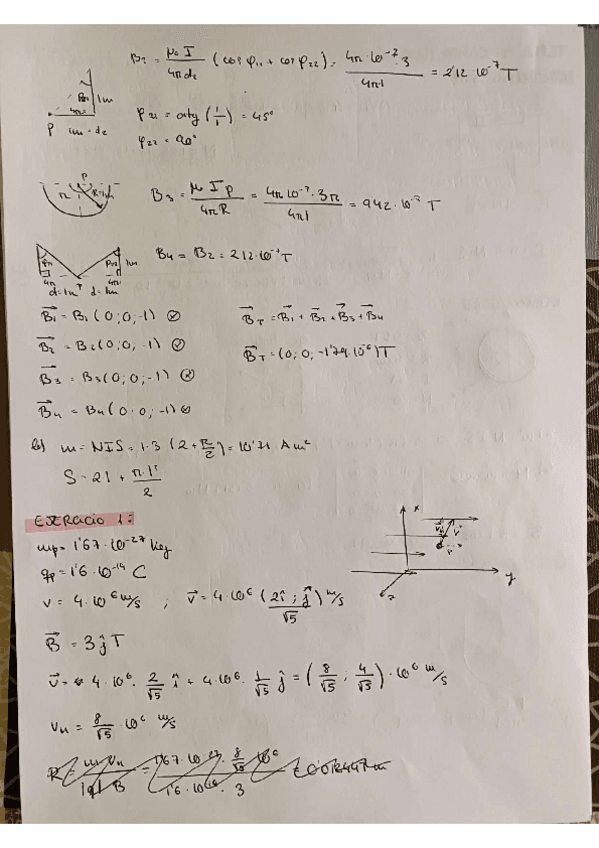 B₂ = μ₀ I / 4π d₂ (cos φ₁₁ + cos φ₂₂) = 4π·10⁻⁷·3 / 4π·1 = 2'12·10⁻⁷ T
1m
P 1m = d₂
φ₂₁ = arctg (1/1) = 45º
φ₂₂ = 90º
P
R=1m
B₃ = μ₀ I φ / 4π R = 4π·10⁻⁷·3π / 4π·1 = 9'42·10⁻⁷ T
B₄ = B₂ = 2'12·10⁻⁷ T
1m
d=1m P d=1m
B₁ = B₁ (0; 0; -1) ⊗
B₂ = B₂ (0; 0; -1) ⊗
B₃ = B₃ (0; 0; -1) ⊗
B₄ = B₄ (0; 0; -1) ⊗
B_T = B₁ + B₂ + B₃ + B₄
B_T = (0; 0; -1'79·10⁻⁶) T
b) m = NIS = 1·3 (2 + π/2) = 10'71 A m²
S = 2·1 + π·1² / 2
EJERCICIO 1:
mp = 1'67·10⁻²⁷ kg
qp = 1'6·10⁻¹⁹ C
v = 4·10⁶ m/s ; v = 4·10⁶ (2i ; j / √5) m/s
B = 3 j T
x
y
z
v = 4·10⁶ · 2/√5 i + 4·10⁶ · 1/√5 j = (8/√5 ; 4/√5)·10⁶ m/s
vₙ = 8/√5 · 10⁶ m/s
R = m vₙ / |q| B = 1'67·10⁻²⁷ · 8/√5 · 10⁶ / 1'6·10⁻¹⁹ · 3